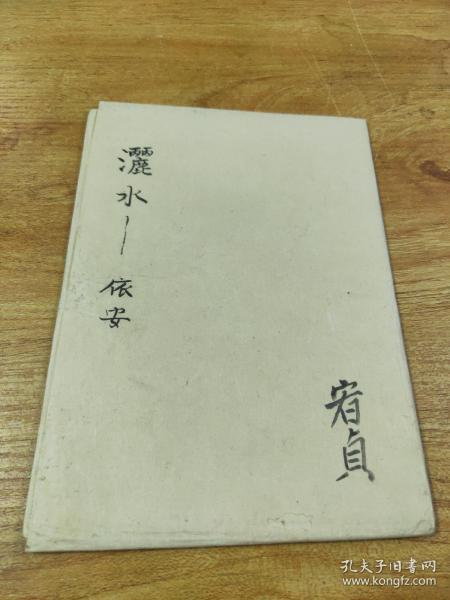 灑水—依安
宥貞
孔夫子旧书网
www.kongfz.com